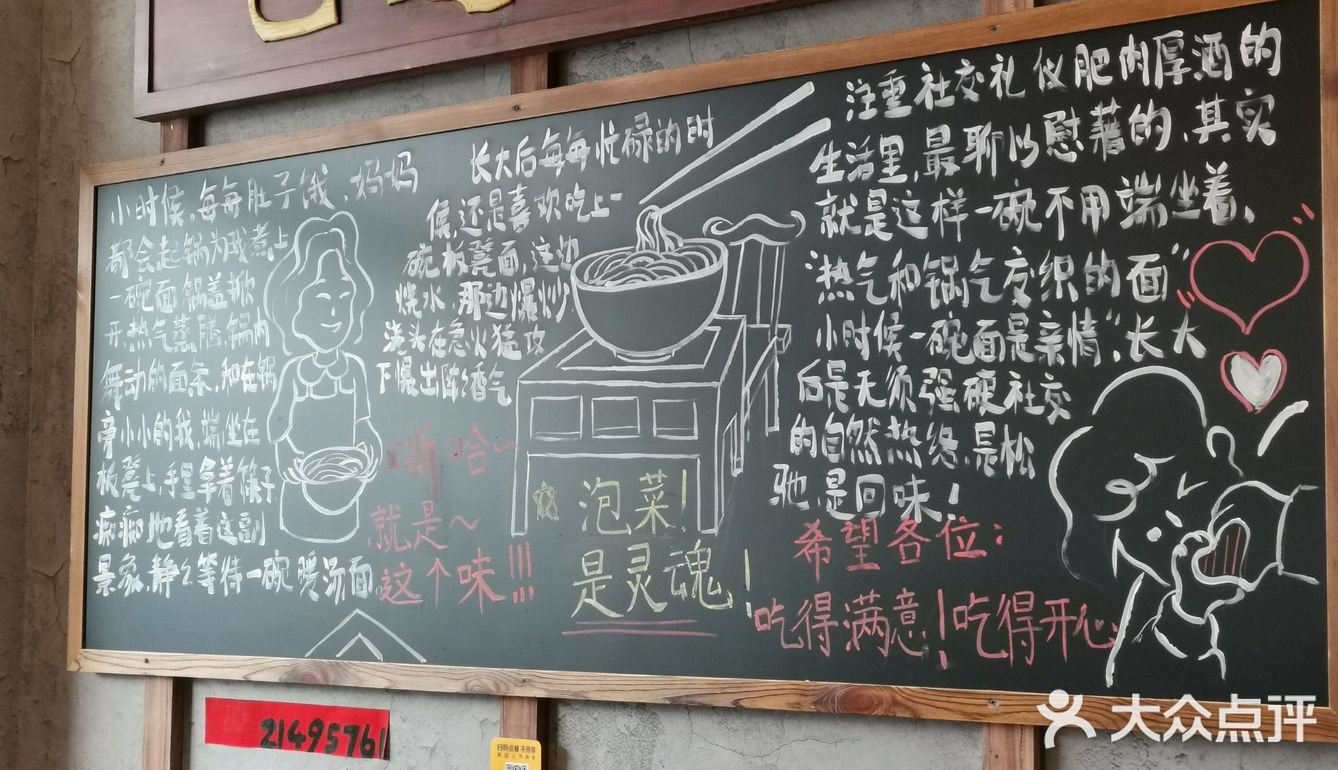 小时候,每每肚子饿、妈妈
都会起锅为我煮上
一碗面 锅盖掀
开,热气蒸腾,锅内
舞动的面条,和在锅
旁小小的我,端坐在
板凳上,手里拿着筷子
痴痴地看着这副
景象,静々等待一碗暖汤面。
长大后每每忙碌的时
候,还是喜欢吃上一
碗板凳面,这边
烧水 那边爆炒
浇头在急火猛攻
下爆出阵々香气
嘶哈~
就是~
这个味!!!
泡菜!
是灵魂!
注重社交礼仪肥肉厚酒的
生活里,最聊以慰藉的、其实
就是这样一碗不用端坐着、
"热气和锅气交织的面"
小时候一碗面是亲情",长大
后是无须强硬社交
的自然热络,是松
驰,是回味!
希望各位:
吃得满意!吃得开心
21495761
扫码点餐 不用等
大众点评